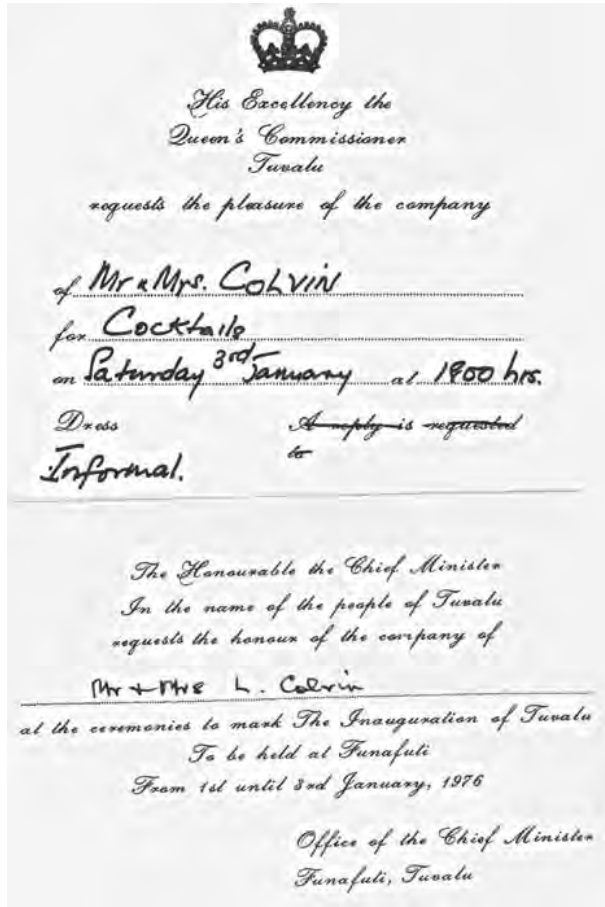 His Excellency the
Queen's Commissioner
Tuvalu
requests the pleasure of the company
of Mr & Mrs. COLVIN
for Cocktails
on Saturday 3rd January at 1800 hrs.
Dress A reply is requested
Informal. to
The Honourable the Chief Minister
In the name of the people of Tuvalu
requests the honour of the company of
Mr + Mrs L. Colvin
at the ceremonies to mark The Inauguration of Tuvalu
To be held at Funafuti
From 1st until 3rd January, 1976
Office of the Chief Minister
Funafuti, Tuvalu